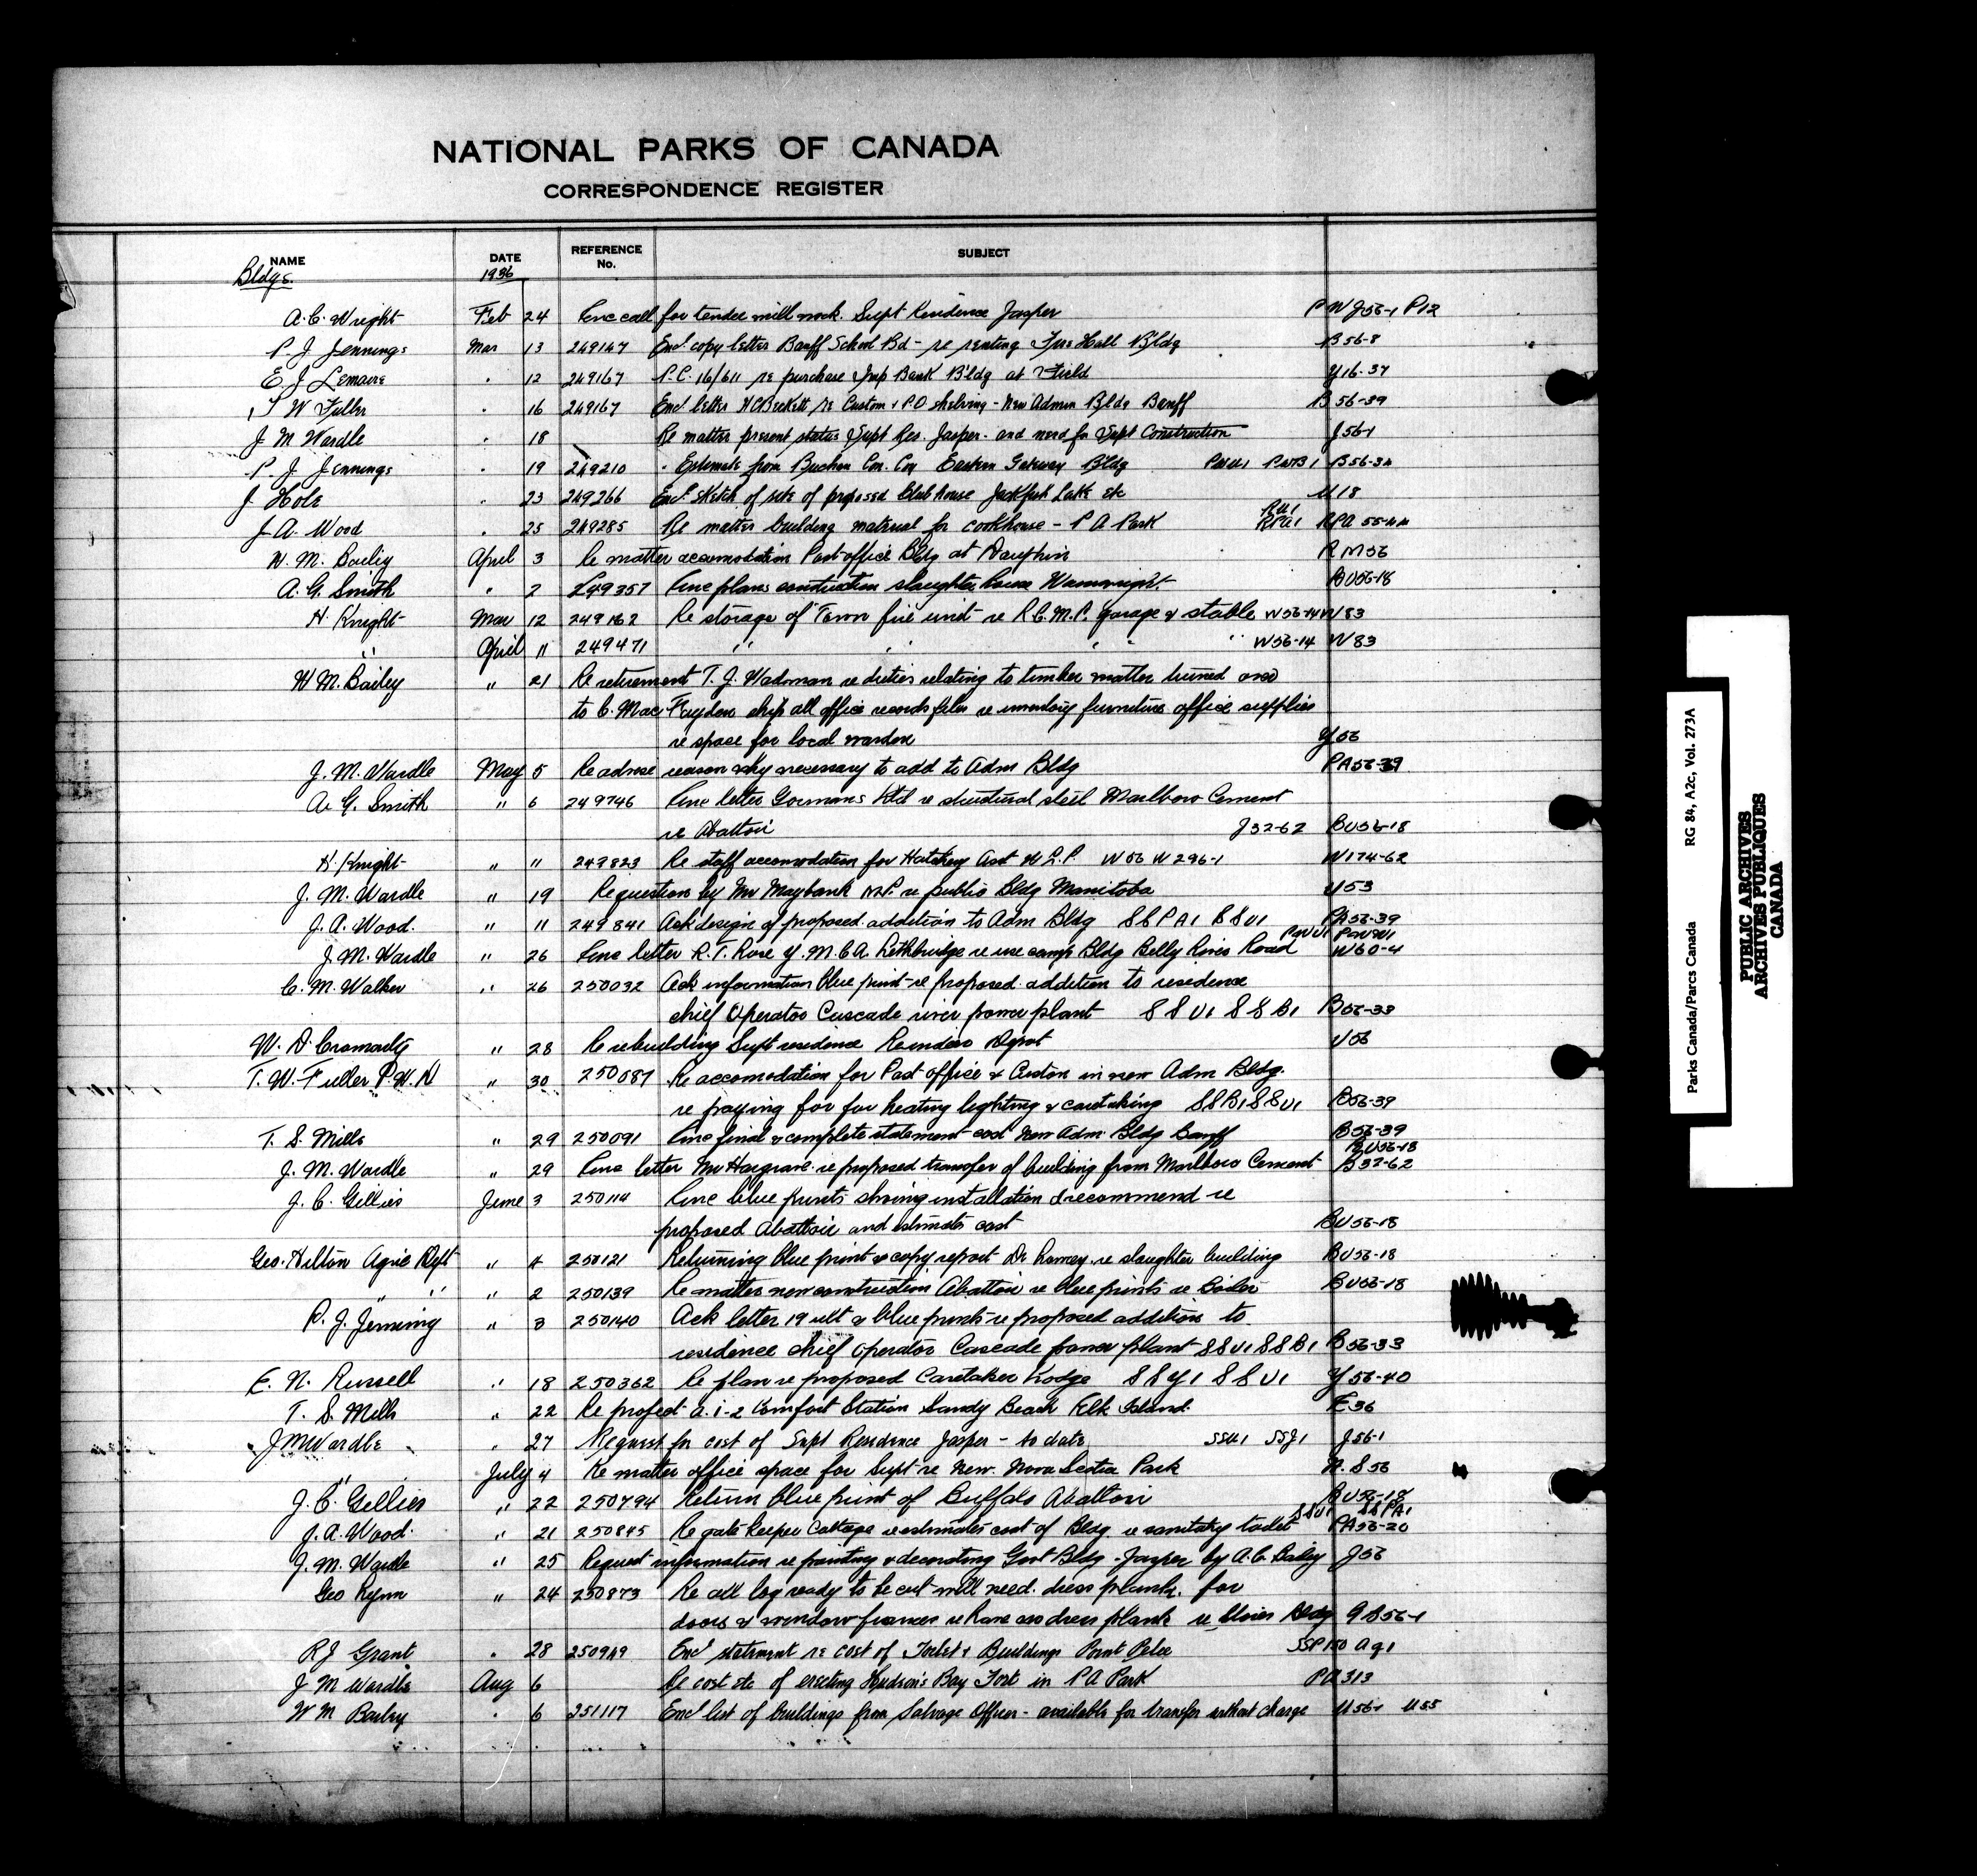 NATIONAL PARKS OF CANADA
CORRESPONDENCE REGISTER
NAME DATE REFERENCE No. SUBJECT
Bldgs. 1936
A. C. Wright Feb 24 Enc call for tender mill work. Supt Residence Jasper PWJ56-1 P12
P. J. Jennings Mar 13 249147 Encl copy letter Banff School Bd - re renting Fire Hall Bldg B56-8
E. J. Lemaire " 12 249167 P.C. 16/611 re purchase Imp Bank Bldg at Field Y16-37
T W Fuller " 16 249167 Encl letter H C Beckett re Custom & P.O shelving - New Admin Bldg Banff B56-39
J M Wardle " 18 Re matter present status Supt Res. Jasper - and need for Supt Construction J56-1
P. J. Jennings " 19 249210 " Estimate from Buchan Con. Coy Eastern Gateway Bldg PWU1 PWB1 B56-34
J Hole " 23 249266 Encl sketch of site of proposed Club house Jackfish Lake etc U18
J. A. Wood " 25 249285 Re matter building material for cookhouse - P A Park RU1 RPA1 RPA 55-44
W. M. Bailey April 3 Re matter accomodation Post office Bldg at Dauphin RM56
A. G. Smith " 2 249357 Enc plans construction slaughter house Wainwright. BU56-18
H. Knight Mar 12 249162 Re storage of Town fire unit re R.C.M.P. garage & stable W56-14 W83
" April 11 249471 " " " " W56-14 W83
W M. Bailey " 21 Re retirement T. J. Wadsman re duties relating to timber matter turned over
to C. Mac Fayden ship all office records files re inventory furniture office supplies
re space for local warden Y56
J. M. Wardle May 5 Re advise reason why necessary to add to Adm Bldg PA56-39
A. G. Smith " 6 249746 Enc letter Gormans Ltd re structural steel Marlboro Cement
re Abattoir J32-62 BU56-18
H. Knight " 11 249823 Re staff accomodation for Hatchery Asst W L P W56 W296-1 W174-62
J. M. Wardle " 19 Re question by Mr Maybank M.P. re public Bldg Manitoba U53
J. A. Wood. " 11 249841 Ack design of proposed addition to Adm Bldg SSPA1 SSU1 PA56-39
J. M. Wardle " 26 Enc letter R. T. Rose Y. M. C A. Lethbridge re use camp Bldg Belly River Road PWU1 PWW1 W60-4
C. M. Walker " 26 250032 Ack information blue print re proposed addition to residence
chief Operator Cascade river power plant SSU1 SSB1 B56-33
W. D. Cromarty " 28 Re rebuilding Supt residence Reindeer Depot U56
T. W. Fuller P. W. D " 30 250087 Re accomodation for Post office & Custom in new Adm Bldg.
re paying for for heating lighting & caretaking SSB1 SSU1 B56-39
T. S. Mills " 29 250091 Enc final & complete statement cost New Adm Bldg Banff B56-39
J. M. Wardle " 29 Enc letter Mr Hargrave re proposed transfer of building from Marlboro Cement BU56-18 B32-62
J. C. Gillies June 3 250114 Enc blue prints showing installation & recommend re
proposed Abattoir and estimates cost BU56-18
Geo. Hilton Agric Dept " 4 250121 Returning blue print & copy report Dr re slaughter building BU56-18
" " " 2 250139 Re matter new construction Abattoir re blue prints re Boiler BU56-18
P. J. Jenning " 3 250140 Ack letter 19 ult & blue prints re proposed addition to
residence chief operator Cascade power plant SSU1 SSB1 B56-33
E. N. Russell " 18 250362 Re plan re proposed Caretaker Lodge SSY1 SSU1 Y56-40
T. S. Mills " 22 Re project A.1-2 Comfort Station Sandy Beach Elk Island. E36
J M Wardle " 27 Request for cost of Supt Residence Jasper - to date SSU1 SSJ1 J56-1
" July 4 Re matter office space for Supt re New Nova Scotia Park N. S56
J. C. Gillies " 22 250794 Return blue print of Buffalo Abattoir BU56-18
J. A. Wood. " 21 250845 Re gate keeper Cottage re estimates cost of Bldg. re sanitary toilet SSU1 SSPA1 PA56-20
J. M. Wardle " 25 Request information re painting & decorating Govt Bldg - Jasper by A. C. Bailey J56
Geo Lynn " 24 250973 Re all log ready to be cut will need dress plank for
doors & window frames re have no dress plank re Bldg GB56-1
R J Grant " 28 250949 Encl statement re cost of Toilet & Buildings Point Pelee SSP150 Ag1
J M Wardle Aug 6 Re cost etc of erecting Hudson's Bay Fort in P A Park PA313
W M Bailey " 6 251117 Encl list of buildings from Salvage Officer - available for transfer without charge U56-1 U55
Parks Canada/Parcs Canada RG 84, A2c, Vol. 273A
PUBLIC ARCHIVES
ARCHIVES PUBLIQUES
CANADA